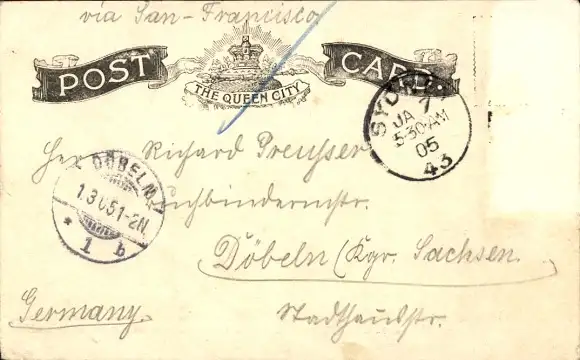 via San-Francisco
POST CARD.
THE QUEEN CITY
SYDNEY
JA 7
5-30 AM
05
43
Herr Richard Preusser
DÖBELN
1.3 05 1-2N.
* 1 b
Buchbindermstr.
Döbeln (Kgr. Sachsen.
Germany.